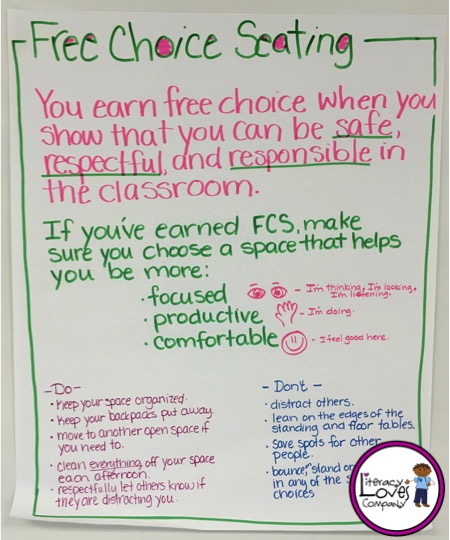 Free Choice Seating
You earn free choice when you
show that you can be safe,
respectful, and responsible in
the classroom.
If you've earned FCS, make
sure you choose a space that helps
you be more:
· focused - I'm thinking, I'm looking,
I'm listening.
· productive - I'm doing.
· comfortable - I feel good here.
- Do -
· Keep your space organized.
· Keep your backpacks put away.
· move to another open space if
you need to.
· clean everything off your space
each afternoon.
· respectfully let others know if
they are distracting you.
- Don't -
· distract others.
· lean on the edges of the
standing and floor tables.
· save spots for other
people.
· bounce, stand
in any of the
choices
Literacy
Loves
Company